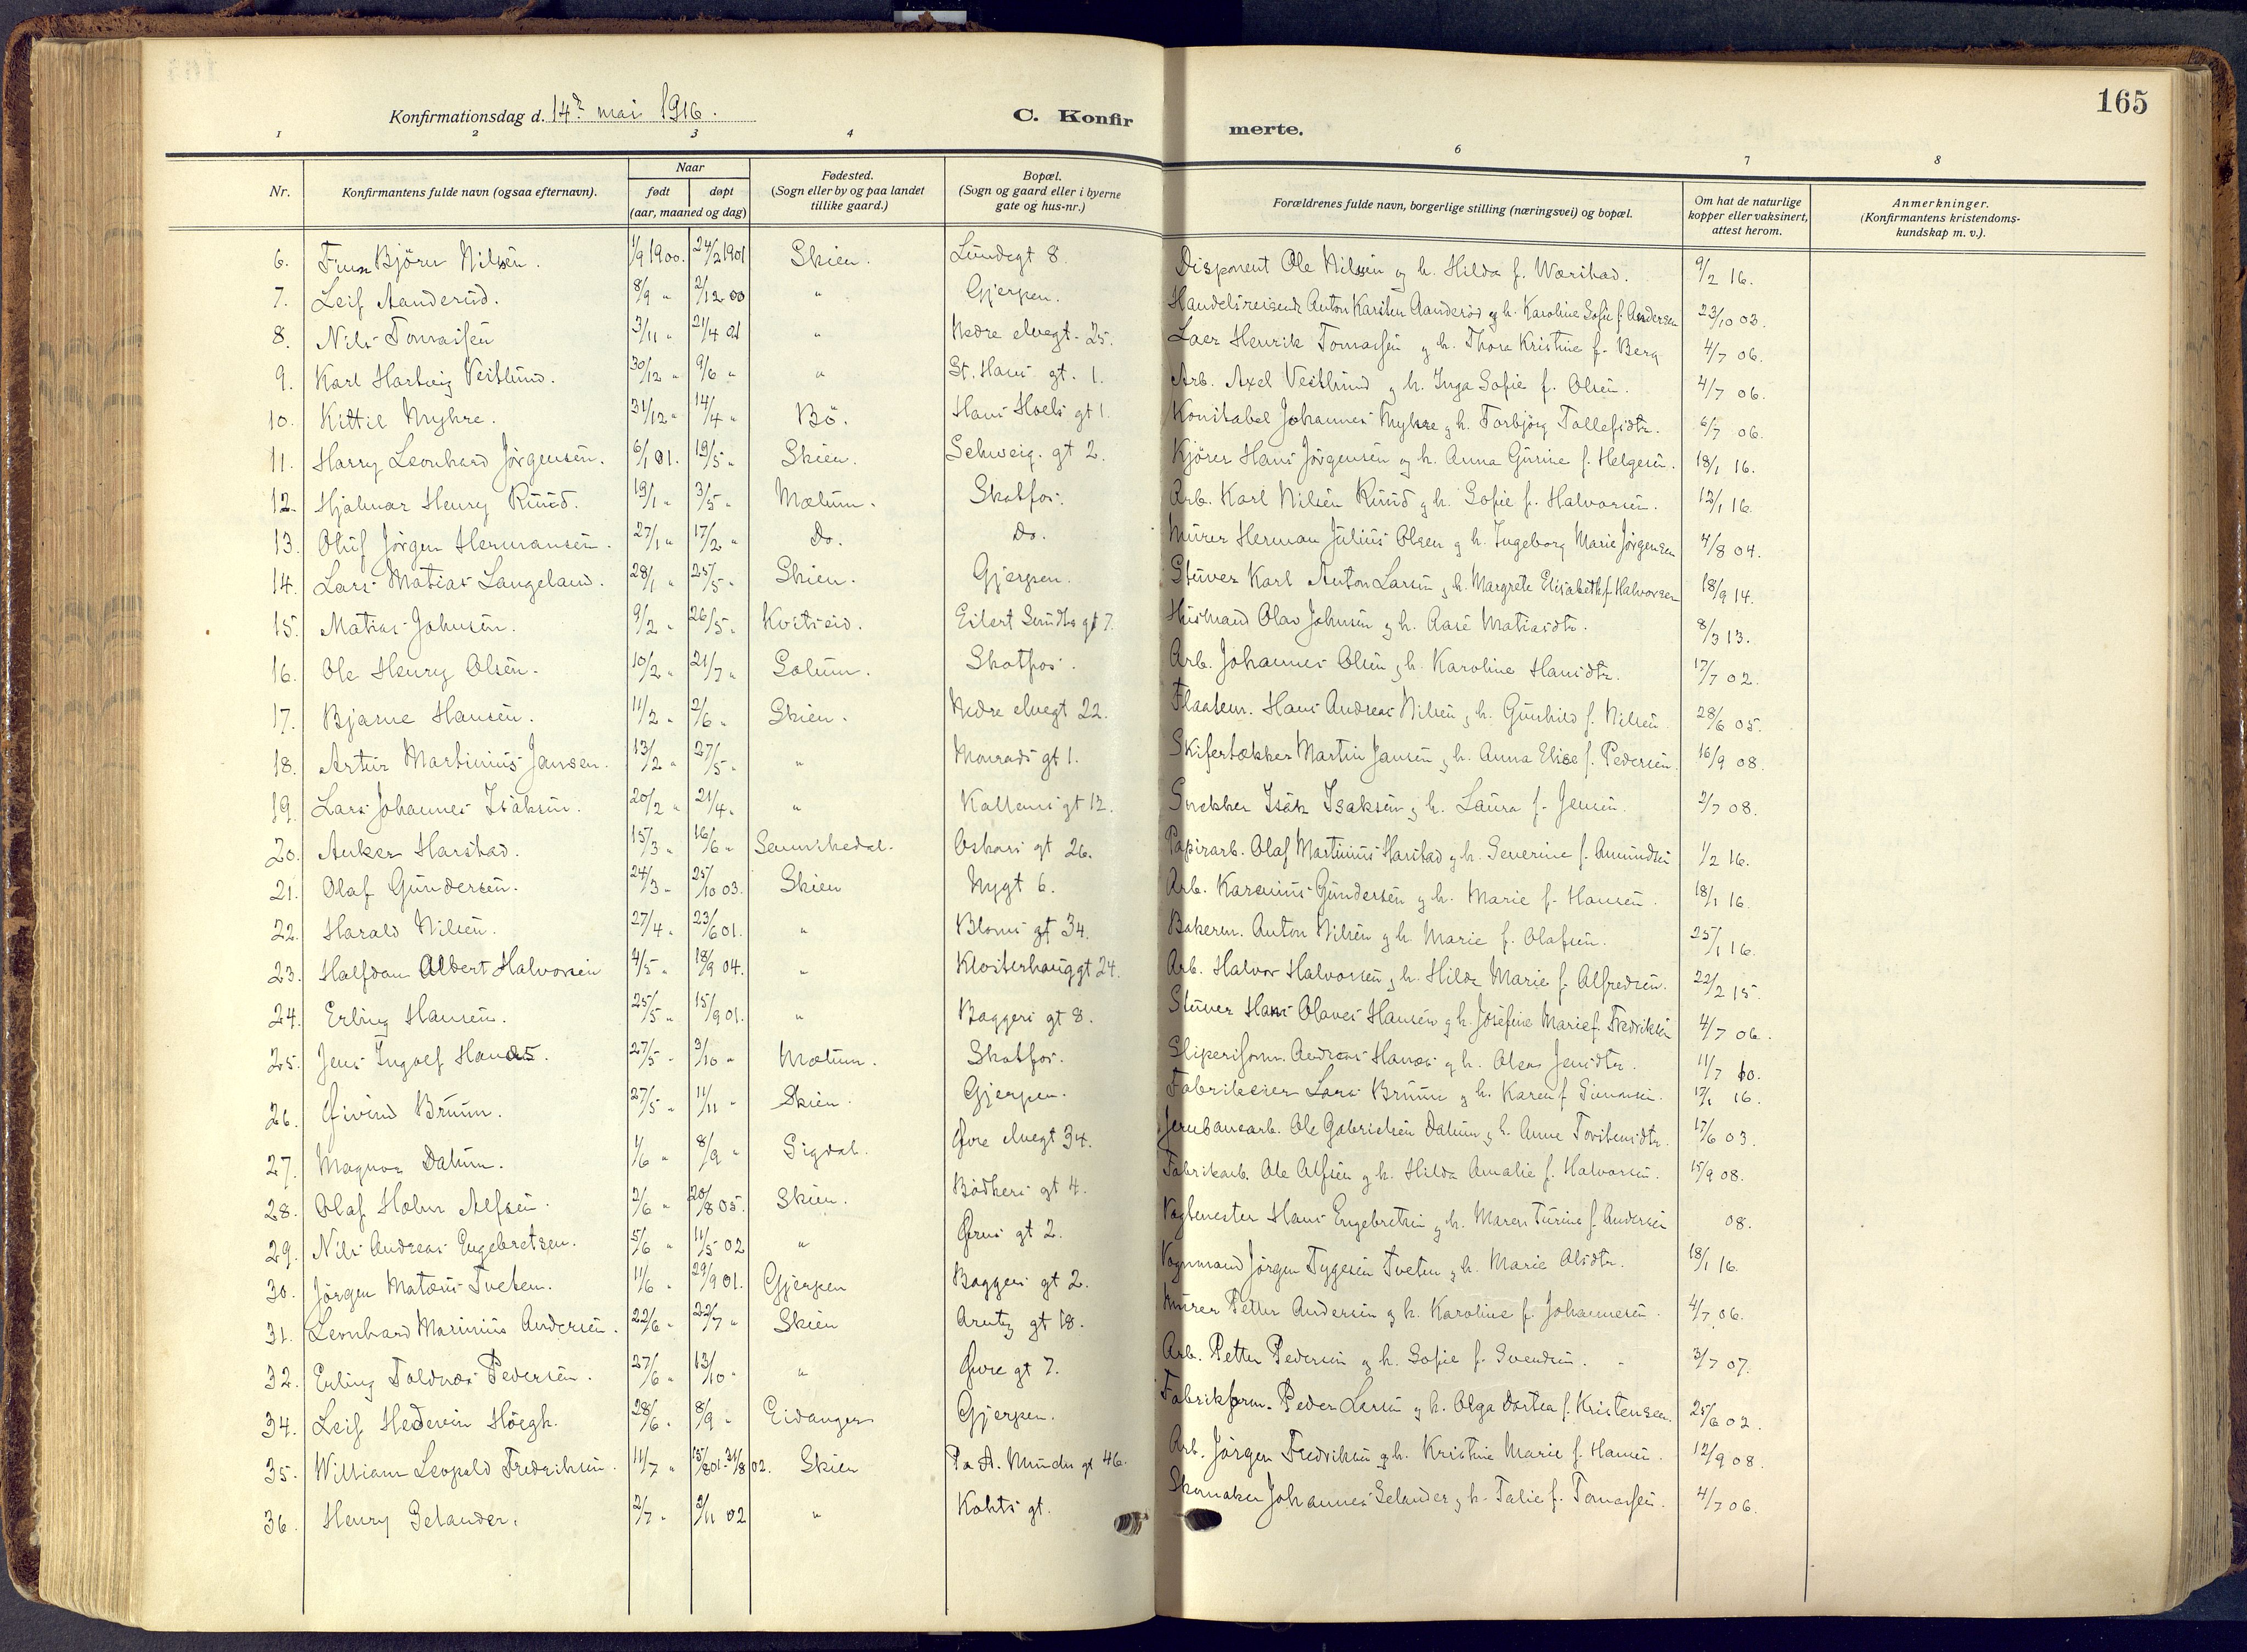 165
Konfirmationsdag d. 14de mai 1916.
C. Konfirmerte.
1 2 3 4 6 7 8
Nr. Konfirmantens fulde navn (ogsaa efternavn). Naar født døpt (aar, maaned og dag) Fødested. (Sogn eller by og paa landet tillike gaard.) Bopæl. (Sogn og gaard eller i byerne gate og hus-nr.) Forældrenes fulde navn, borgerlige stilling (næringsvei) og bopæl. Om hat de naturlige kopper eller vaksinert, attest herom. Anmerkninger. (Konfirmantens kristendomskundskap m. v.).
6. Björn Nilsen. 1/9 1900. 24/2 1901 Skien. Lundegt 8. Disponent Ole Nilsen og h. Hilda f. Værstad. 9/2 16.
7. Leif Aanderud. 8/9 " 2/12 00 " Gjerpen. Handelsreisende Anton Karsten Aanderød og h. Karoline Sofie f. Andersen 23/10 03.
8. Nils Tomassen 3/11 " 21/4 01 " Nedre elvegt. 25. Henrik Tomassen og h. Thora Kristine f. Berg 4/7 06.
9. Karl Hartvig Vestlund. 30/12 " 9/6 " " St. Hans gt. 1. Arb. Axel Vestlund og h. Inga Sofie f. Olsen. 4/7 06.
10. Kittil Myhre. 31/12 " 14/4 " Bö. Hans Hoels gt 1. Konstabel Johannes Myhre og h. Torbjörg Tollefsdtr. 6/7 06.
11. Harry Leonhard Jörgensen. 6/1 01. 19/5 " Skien. Schweig. gt 2. Kjörer Hans Jörgensen og h. Anna Gurine f. Helgesen. 18/1 16.
12. Hjalmar Henry Ruud. 19/1 " 3/5 " Mælum. Skotfos. Arb. Karl Nilsen Ruud og h. Sofie f. Halvorsen. 13/1 16.
13. Oluf Jörgen Hermansen. 27/1 " 17/2 " Do. Do. Murer Herman Julius Olsen og h. Ingeborg Marie Jörgensen 4/8 04.
14. Lars Matias Langeland. 28/1 " 25/5 " Skien. Gjerpen. Stuver Karl Anton Larsen og h. Margrete Elisabeth f. Halvorsen 18/9 14.
15. Matias Johnsen. 9/2 " 26/5 " Kvitseid. Eilert Sundts gt 7. Husmand Olav Johnsen og h. Aase Matiasdtr. 8/3 13.
16. Ole Henry Olsen. 10/2 " 21/7 " Solum. Skotfos. Arb. Johannes Olsen og h. Karoline Hansdtr. 17/7 02.
17. Bjarne Hansen. 11/2 " 2/6 " Skien. Nedre elvegt 22. Flaatem. Hans Andreas Nilsen og h. Gunhild f. Nilsen. 28/6 05.
18. Artur Martinius Jansen. 13/2 " 27/5 " " Monrads gt 1. Skifertækker Martin Jansen og h. Anna Elise f. Pedersen. 16/9 08.
19. Lars Johannes Isaksen. 20/2 " 21/4 " " gt 12. Snekker Isak Isaksen og h. Laura f. Jensen. 2/7 08.
20. Anker Harstad. 15/3 " 16/6 " Sannikedal. Oskars gt 26. Papirarb. Olaf Martinius Harstad og h. Severine f. Amundsen 1/2 16.
21. Olaf Gundersen. 24/3 " 25/10 03. Skien Nygt 6. Arb. Karenius Gundersen og h. Marie f. Hansen. 18/1 16.
22. Harald Nilsen. 27/4 " 23/6 01. " Bloms gt 34. Bakerm. Anton Nilsen og h. Marie f. Olafsen. 25/1 16.
23. Halfdan Albert Halvorsen 4/5 " 18/9 04. " Klosterhauggt 24. Arb. Halvor Halvorsen og h. Hilda Marie f. Alfredsen. 22/2 15.
24. Erling Hansen. 25/5 " 15/9 01. " Baggers gt 8. Stuver Hans Olaves Hansen og h. Josefine Marie f. Fredriksen 4/7 06.
25. Jens Ingolf Hanaas. 27/5 " 3/10 " Mælum. Skotfos. Sliperiform. Andreas Hanaas og h. Olene Jensdtr. 11/7 10.
26. Øivind Bruun. 27/5 " 11/11 " Skien. Gjerpen. Fabrikeier Lars Bruun og h. Karen f. Simonsen. 17/1 16.
27. Magnar Dalum. 1/6 " 8/9 " Sigdal. Øvre elvegt 34. Jernbanearb. Ole Gabrielsen Dalum og h. Anne Torstensdtr. 17/6 03.
28. Olaf Holm Alfsen. 2/6 " 20/8 05. Skien. Bödkers gt 4. Fabrikarb. Ole Alfsen og h. Hilda Amalie f. Halvorsen. 15/9 08.
29. Nils Andreas Engebretsen. 5/6 " 11/5 02 " gt 2. Vagtmester Hans Engebretsen og h. Maren Turine f. Andersen 08.
30. Jörgen Matæus Tveten. 11/6 " 29/9 01. Gjerpen Baggers gt 2. Vognmand Jörgen Tygesen Tveten og h. Marie Olsdtr. 18/1 16.
31. Leonhard Marinius Andersen. 22/6 " 22/7 " Skien Arntz gt 18. Murer Petter Andersen og h. Karoline f. Johannesen. 4/7 06.
32. Erling Toldnæs Pedersen. 27/6 " 13/10 " " Øvre gt 7. Arb. Petter Pedersen og h. Sofie f. Svendsen. 3/7 07.
34. Leif Hedevin Höegh. 28/6 " 8/9 " Eidanger Gjerpen. Fabrikform. Peder Larsen og h. Olga Dortea f. Kristensen. 25/6 02.
35. William Leopold Fredriksen. 11/7 " 15/8 01 - 31/8 02. Skien P. A. Munchs gt 46. Arb. Jörgen Fredriksen og h. Kristine Marie f. Hansen. 12/9 08.
36. Henry Selander. 2/7 " 2/11 02 " Kohts gt. Skomaker Johannes Selander og h. Talie f. Tomassen. 4/7 06.